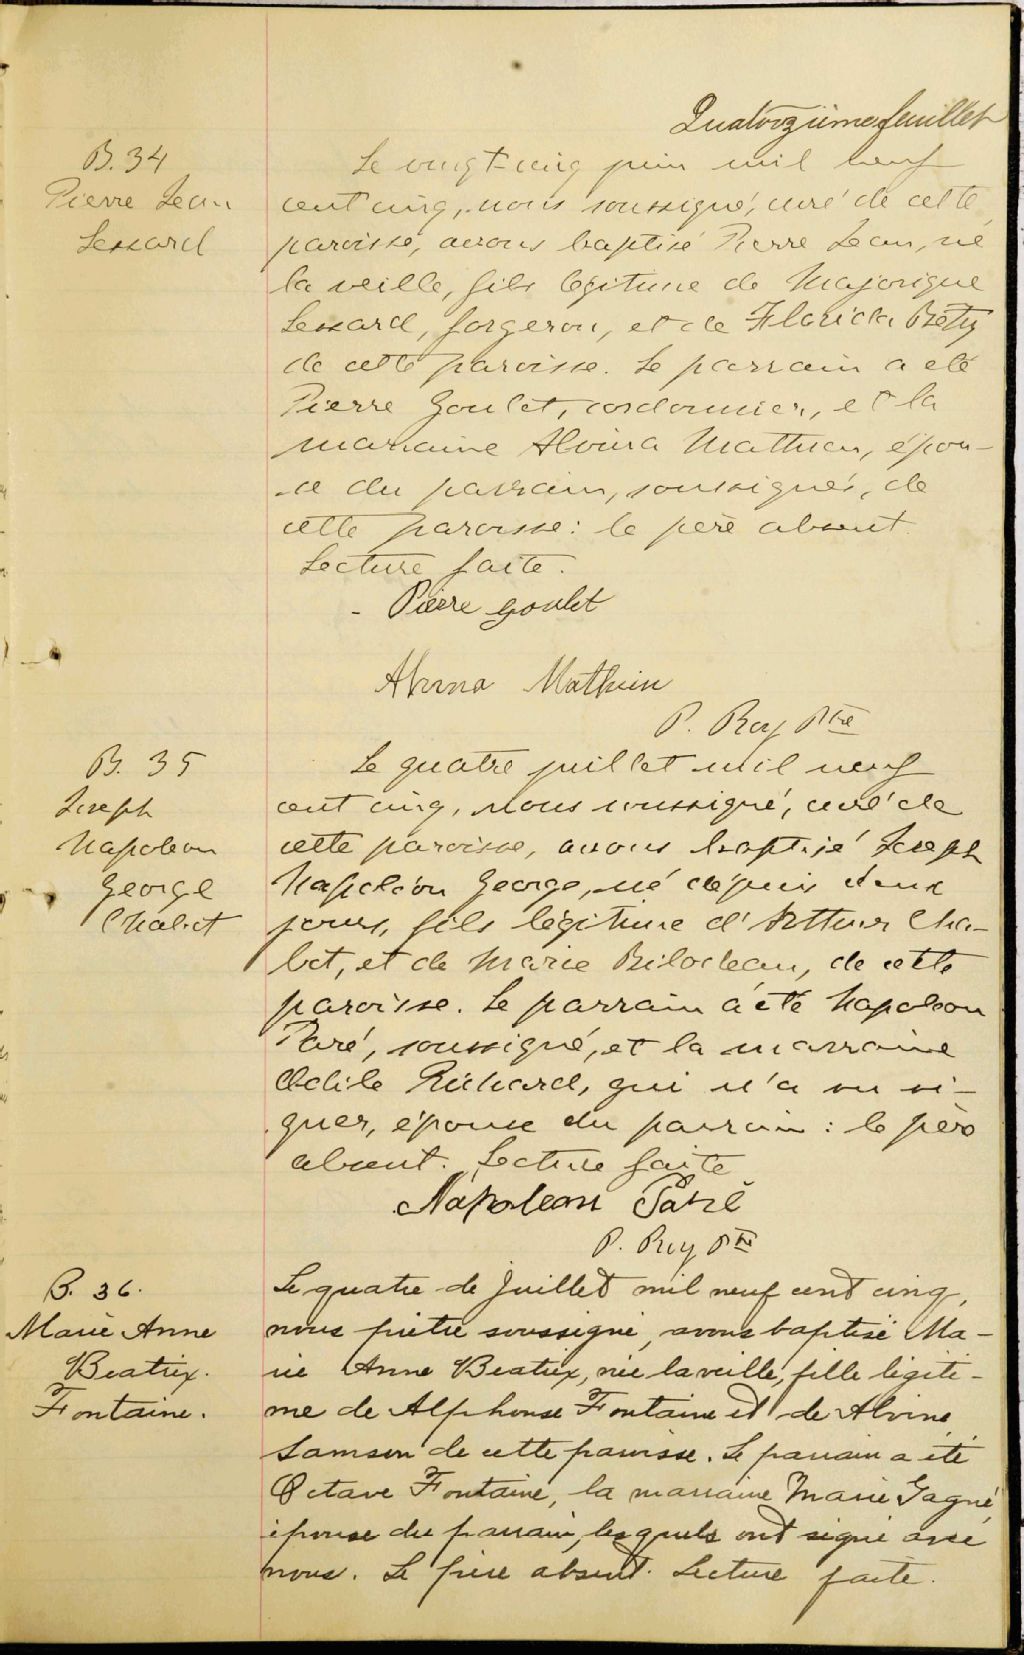 Quatorzième feuillet
B. 34
Pierre Jean
Lessard
Le vingt-cinq juin mil neuf
cent cinq, nous soussigné, curé de cette
paroisse, avons baptisé Pierre Jean, né
la veille, fils légitime de Majorique
Lessard, forgeron, et de Florida Béty
de cette paroisse. Le parrain a été
Pierre Goulet, cordonnier, et la
marraine Alvina Mathieu, épou-
se du parrain, soussignés, de
cette paroisse: le père absent
Lecture faite.
Pierre Goulet
Alvina Mathieu
P. Roy Ptre
B. 35
Joseph
Napoléon
George
Chabot
Le quatre juillet mil neuf
cent cinq, nous soussigné, curé de
cette paroisse, avons baptisé Joseph
Napoléon George, né depuis deux
jours, fils légitime d'Arthur Cha-
bot, et de Marie Bilodeau, de cette
paroisse. Le parrain a été Napoléon
Paré, soussigné, et la marraine
Odile Richard, qui n'a su si-
gner, épouse du parrain: le père
absent. Lecture faite
Napoleon Paré
P. Roy Ptre
B. 36.
Marie Anne
Beatrix.
Fontaine.
Le quatre de Juillet mil neuf cent cinq,
nous prêtre soussigné, avons baptisé Ma-
rie Anne Beatrix, née la veille, fille légiti-
me de Alphonse Fontaine et de Alvine
Samson de cette paroisse. Le parrain a été
Octave Fontaine, la marraine Marie Gagné
épouse du parrain, lesquels ont signé avec
nous. Le père absent. Lecture faite.